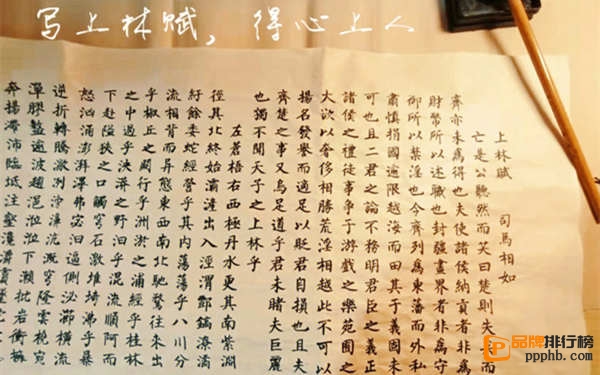 写上林赋，得心上人
上林賦 司馬相如
亡是公听然而笑曰楚則失矣而
齊亦未為得也夫使諸侯納貢者非為
財幣所以述職也封疆畫界者非為守
御所以禁淫也今齊列為東藩而外私
肅慎捐國逾限越海而田其于義固未
可也且二君之論不務明君臣之義正
諸侯之禮徒事爭于游戲之樂苑囿之
大欲以奢侈相勝荒淫相越此不可以
揚名發譽而適足以貶君自損也且夫
齊楚之事又烏足道乎君未睹夫巨麗
也獨不聞天子之上林乎
左蒼梧右西極丹水更其南紫淵
徑其北終始灞滻出入涇渭酆鎬潦潏
紆餘委蛇經營乎其內蕩蕩乎八川分
流相背而異態東西南北馳騖往來出
乎椒丘之闕行乎洲淤之浦經乎桂林
之中過乎泱漭之野汩乎混流順阿而
下赴隘狹之口觸穹石激堆埼沸乎暴
怒洶涌澎湃滭弗宓汩逼側泌瀄橫流
逆折轉騰潎洌滂濞沆溉穹隆雲橈宛
潬膠盭逾波趨浥涖涖下瀨批岩衝擁
奔揚滯沛臨坻注壑瀺灂霣
品牌排行榜
ppphb.com